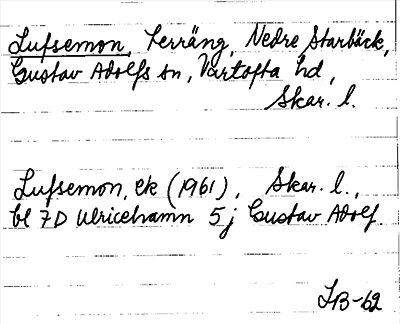 Lufsemon, Terräng, Nedre Starbäck,
Gustav Adolfs sn, Vartofta hd,
Skar. l.
Lufsemon, ek (1961), Skar. l.,
bl 7D Ulricehamn 5j Gustav Adolf
IB-62